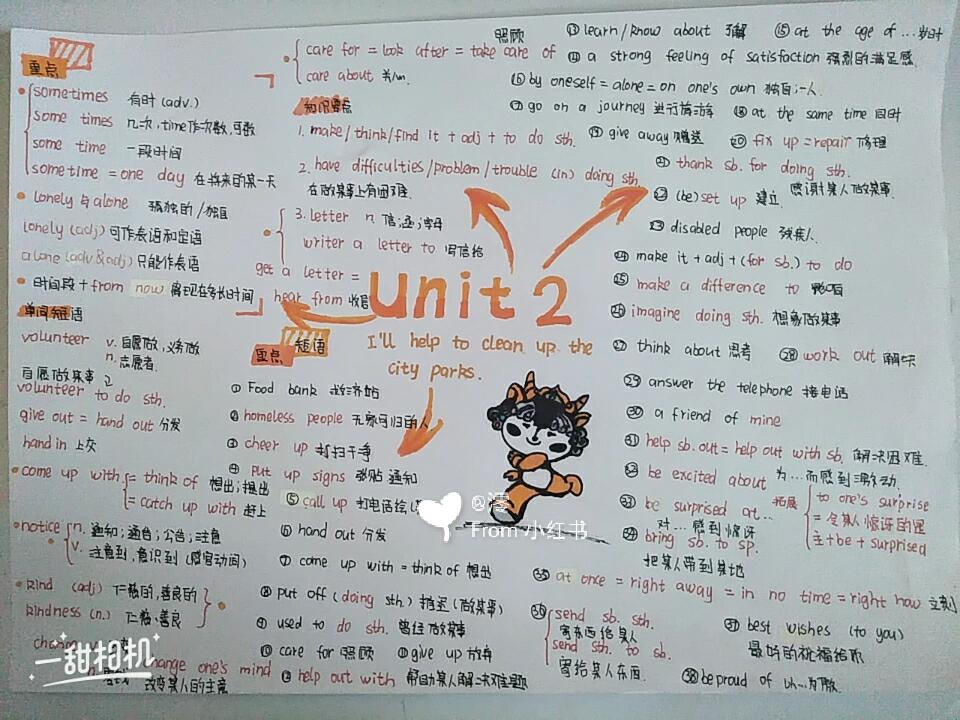 重点
sometimes 有时(adv.)
some times 几次,time作次数,可数
some time 一段时间
sometime = one day 在将来的某一天
lonely与alone 孤独的/独自
lonely(adj)可作表语和定语
alone(adv&adj)只能作表语
时间段+from now 离现在多长时间
单词短语
volunteer v.自愿做,义务做
n.志愿者
自愿做某事
volunteer to do sth.
give out = hand out 分发
hand in 上交
come up with = think of 想出;提出
= catch up with 赶上
notice n.通知;通告;公告;注意
v.注意到,意识到(感官动词)
kind (adj) 仁慈的,善良的
kindness (n.) 仁慈、善良
change one's mind
改变某人的主意
一甜相机
照顾
care for = look after = take care of
care about 关心
知识要点
1. make/think/find it + adj + to do sth.
2. have difficulties/problem/trouble (in) doing sth.
在做某事上有困难.
3. letter n.信;函;字母
writer a letter to 写信给
get a letter =
hear from
unit 2
I'll help to clean up the
city parks.
重点
短语
① Food bank 救济站
② homeless people 无家可归的人
③ cheer up 打扫干净
④ put up signs 张贴通知
⑤ call up
@澪
From 小红书
⑥ hand out 分发
⑦ come up with = think of 想出
⑧ put off (doing sth.) 推迟(做某事)
⑨ used to do sth. 曾经做某事
⑩ care for 照顾 ⑪ give up 放弃
⑫ help out with 帮助某人解决难题
⑬ learn/know about 了解 ⑮ at the age of …岁时
⑭ a strong feeling of satisfaction 强烈的满足感
⑯ by oneself = alone = on one's own 独自;一人
⑰ go on a journey 进行旅游 ⑱ at the same time 同时
⑲ give away 赠送 ⑳ fix up = repair 修理
㉑ thank sb. for doing sth.
感谢某人做某事.
㉒ (be) set up 建立
㉓ disabled people 残疾人
㉔ make it + adj + (for sb.) to do
㉕ make a difference to 影响
㉖ imagine doing sth. 想象做某事
㉗ think about 思考 ㉘ work out 解决
㉙ answer the telephone 接电话
㉚ a friend of mine
㉛ help sb. out = help out with sb. 解决困难.
㉜ be excited about 为…而感到激动.
㉝ be surprised at…
对…感到惊讶
拓展
to one's surprise
= 令某人惊讶的是
主+be+surprised
㉞ bring sb. to sp.
把某人带到某地
㉟ at once = right away = in no time = right now 立刻
㊱ send sb. sth.
寄东西给某人
send sth. to sb.
寄给某人东西.
㊲ best wishes (to you)
最好的祝福给你
㊳ be proud of 以…为傲.